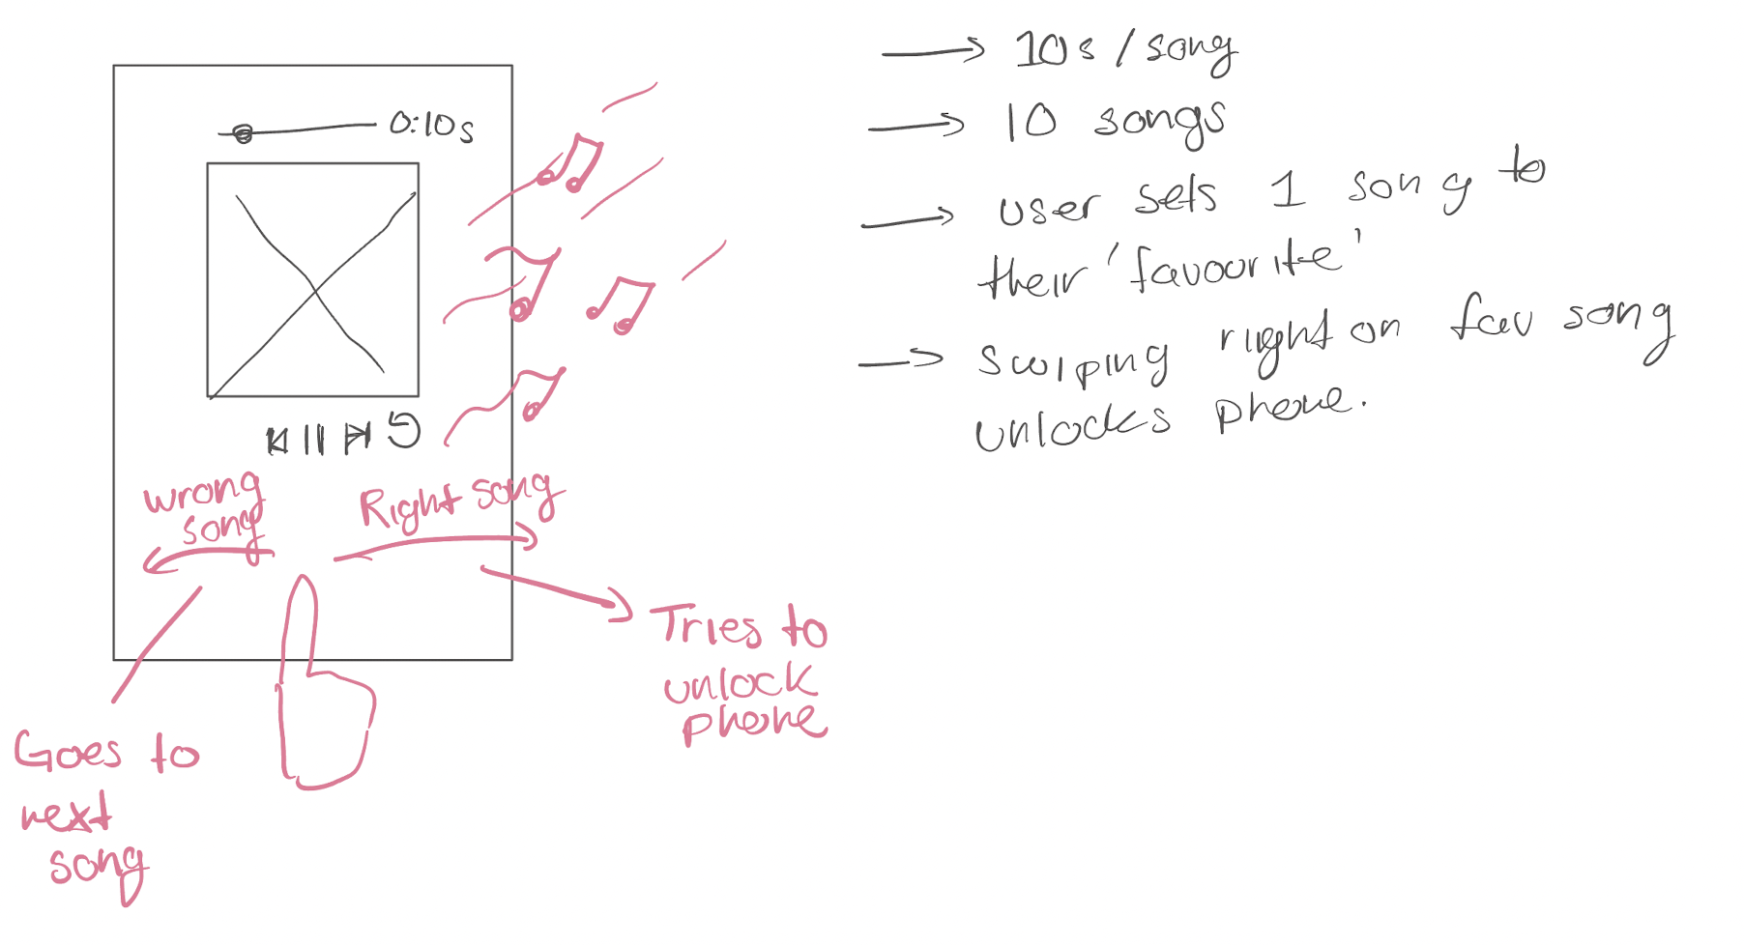 0:10s
wrong
song
Right song
Goes to
next
song
Tries to
unlock
phone
→ 10s/song
→ 10 songs
→ user sets 1 song to
their 'favourite'
→ swiping right on fav song
unlocks phone.